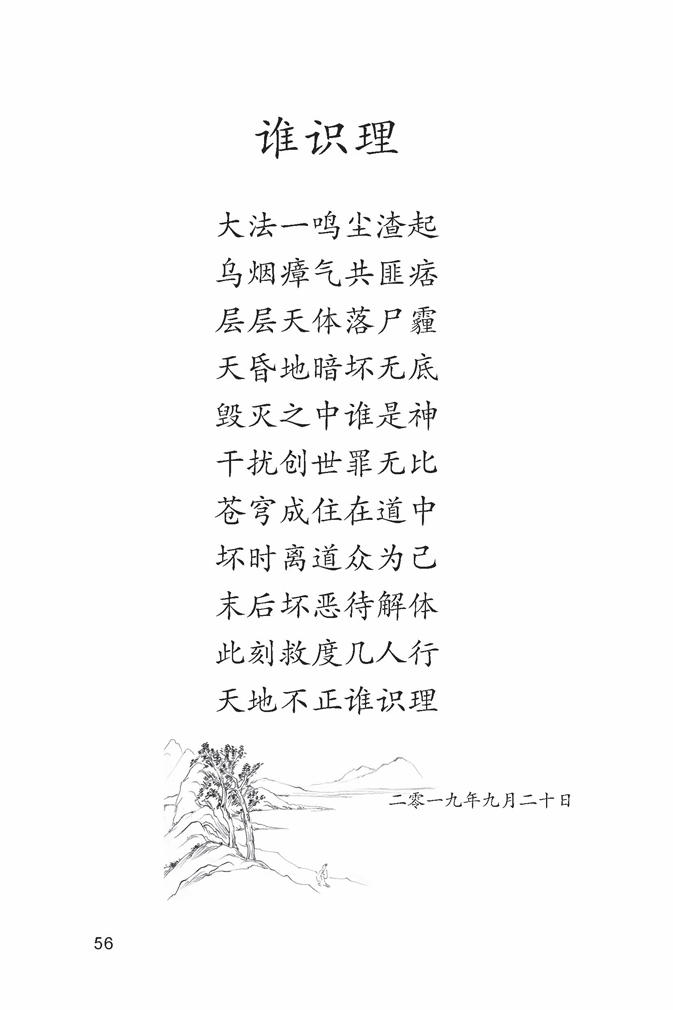 谁识理
大法一鸣尘渣起
乌烟瘴气共匪痞
层层天体落尸霾
天昏地暗坏无底
毁灭之中谁是神
干扰创世罪无比
苍穹成住在道中
坏时离道众为己
末后坏恶待解体
此刻救度几人行
天地不正谁识理
二零一九年九月二十日
56